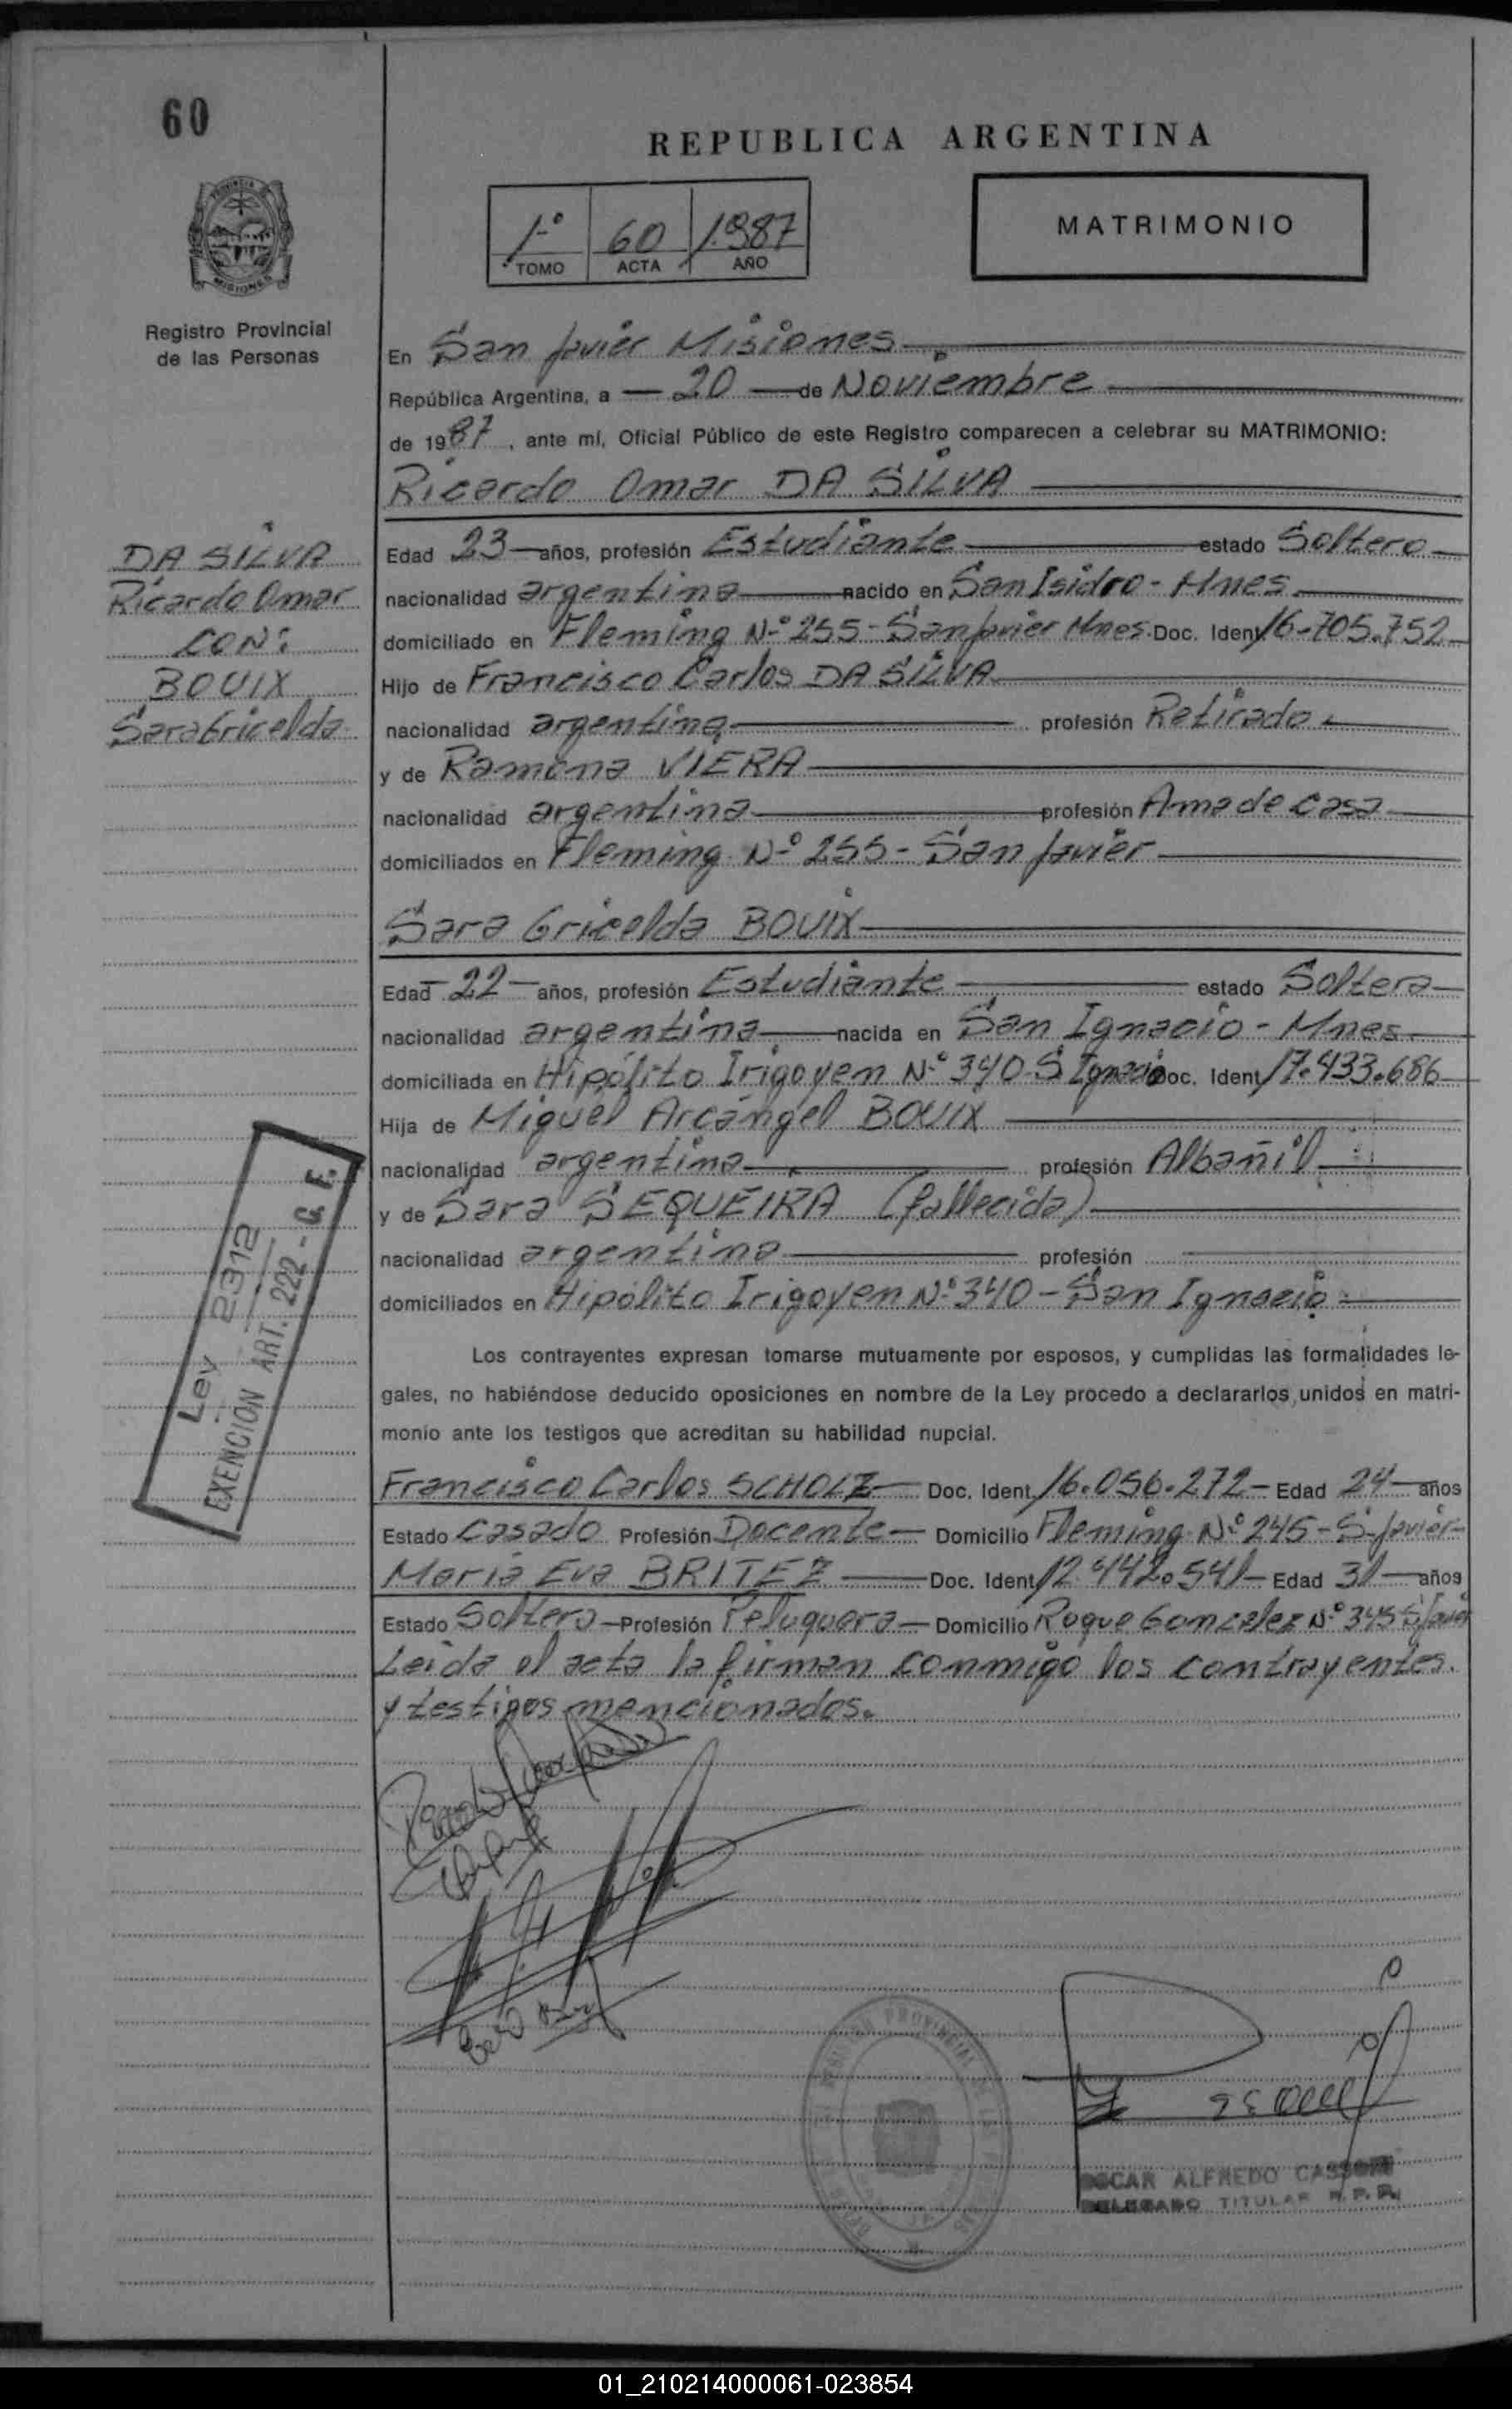 60
REPUBLICA ARGENTINA
1º 60 1.987
TOMO ACTA AÑO
MATRIMONIO
PROVINCIA DE
MISIONES
Registro Provincial
de las Personas
En San Javier Misiones
República Argentina, a 20 de Noviembre
de 1987, ante mí, Oficial Público de este Registro comparecen a celebrar su MATRIMONIO:
Ricardo Omar DA SILVA
DA SILVA
Ricardo Omar
CON:
BOUIX
Sara Gricelda
Edad 23 años, profesión Estudiante estado Soltero
nacionalidad argentina nacido en San Isidro - Mnes
domiciliado en Fleming Nº 255 - San Javier Mnes. Doc. Ident 16.705.752
Hijo de Francisco Carlos DA SILVA
nacionalidad argentina profesión Retirado
y de Ramona VIERA
nacionalidad argentina profesión Ama de casa
domiciliados en Fleming Nº 255 - San Javier
Sara Gricelda BOUIX
Edad 22 años, profesión Estudiante estado Soltera
nacionalidad argentina nacida en San Ignacio - Mnes
domiciliada en Hipólito Irigoyen Nº 340 S Ignacio Doc. Ident 17.433.686
Hija de Miguel Arcángel BOUIX
nacionalidad argentina profesión Albañil
y de Sara SEQUEIRA (fallecida)
nacionalidad argentina profesión
domiciliados en Hipólito Irigoyen Nº 340 - San Ignacio
Ley 2312
EXENCION ART. 222 - C. F.
Los contrayentes expresan tomarse mutuamente por esposos, y cumplidas las formalidades le-
gales, no habiéndose deducido oposiciones en nombre de la Ley procedo a declararlos unidos en matri-
monio ante los testigos que acreditan su habilidad nupcial.
Francisco Carlos SCHOLZ Doc. Ident. 16.056.272 - Edad 24 años
Estado Casado Profesión Docente Domicilio Fleming Nº 245 - S. Javier
María Eva BRITEZ Doc. Ident 12.442.541 - Edad 31 años
Estado Soltera Profesión Peluquera Domicilio Roque Gonzalez Nº 345 S/Javier
Leida el acta la firman conmigo los contrayentes.
y testigos mencionados.
OSCAR ALFREDO
DELEGADO TITULAR R. P. P.
01_210214000061-023854